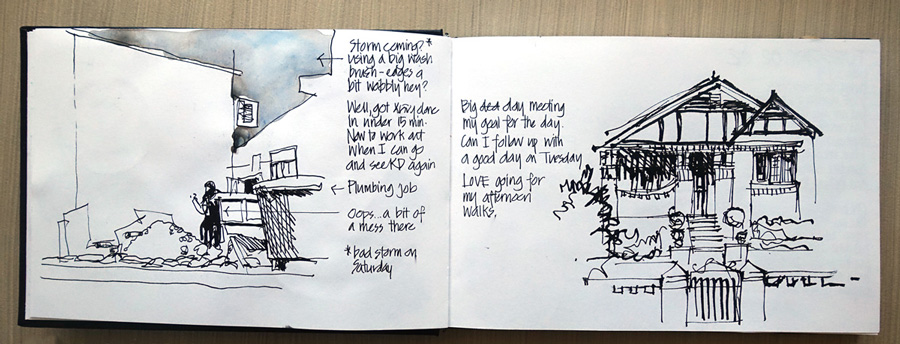 Storm coming?*
using a big wash
brush - edges a
bit wobbly hey?
Well, got Xray done
in under 15 min.
Now to work out
when I can go
and see KD again
Plumbing job
Oops...a bit of
a mess there
* bad storm on
Saturday
Big day meeting
my goal for the day.
Can I follow up with
a good day on Tuesday
LOVE going for
my afternoon
walks.